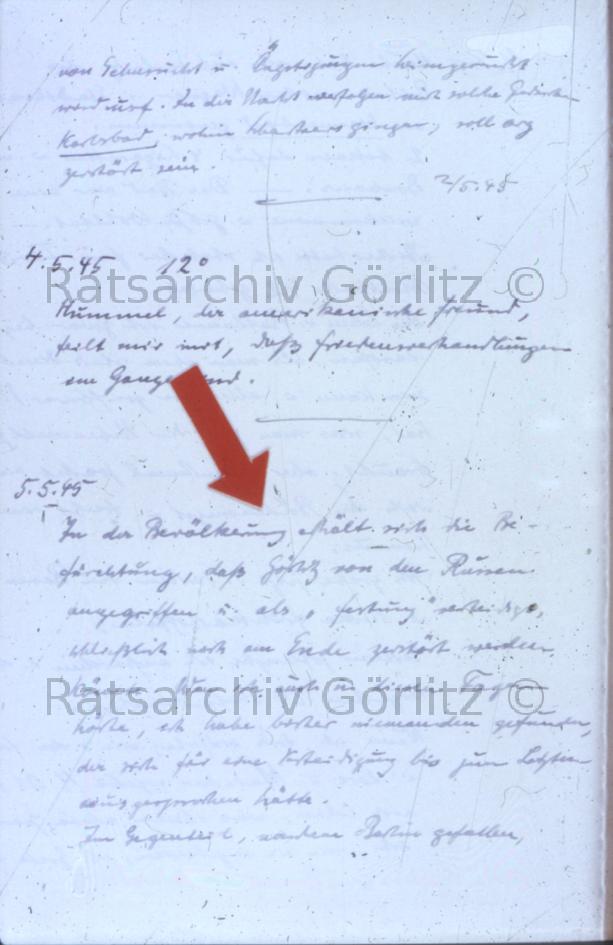 von Sehnsucht u. heimgesucht
werd. In der Nacht verfolgen mich solche Gedanken
Karlsbad, wohin gingen, soll arg
zerstört sein.
2/5.45
4.5.45 12°
Ratsarchiv Görlitz ©
Hummel, der amerikanische Freund,
teilt mir mit, daß Friedensverhandlungen
im Gange sind.
5.5.45
In der Bevölkerung erhält sich die Be-
fürchtung, daß Görlitz von den Russen
angegriffen u. als „Festung“ verteidigt,
schließlich noch am Ende zerstört werden
könnte. ich auch in diesen Tagen
Ratsarchiv Görlitz ©
hörte, ich habe bisher niemanden gefunden,
der sich für eine Verteidigung bis zum Letzten
ausgesprochen hätte.
Im Gegenteil, nachdem Berlin gefallen,